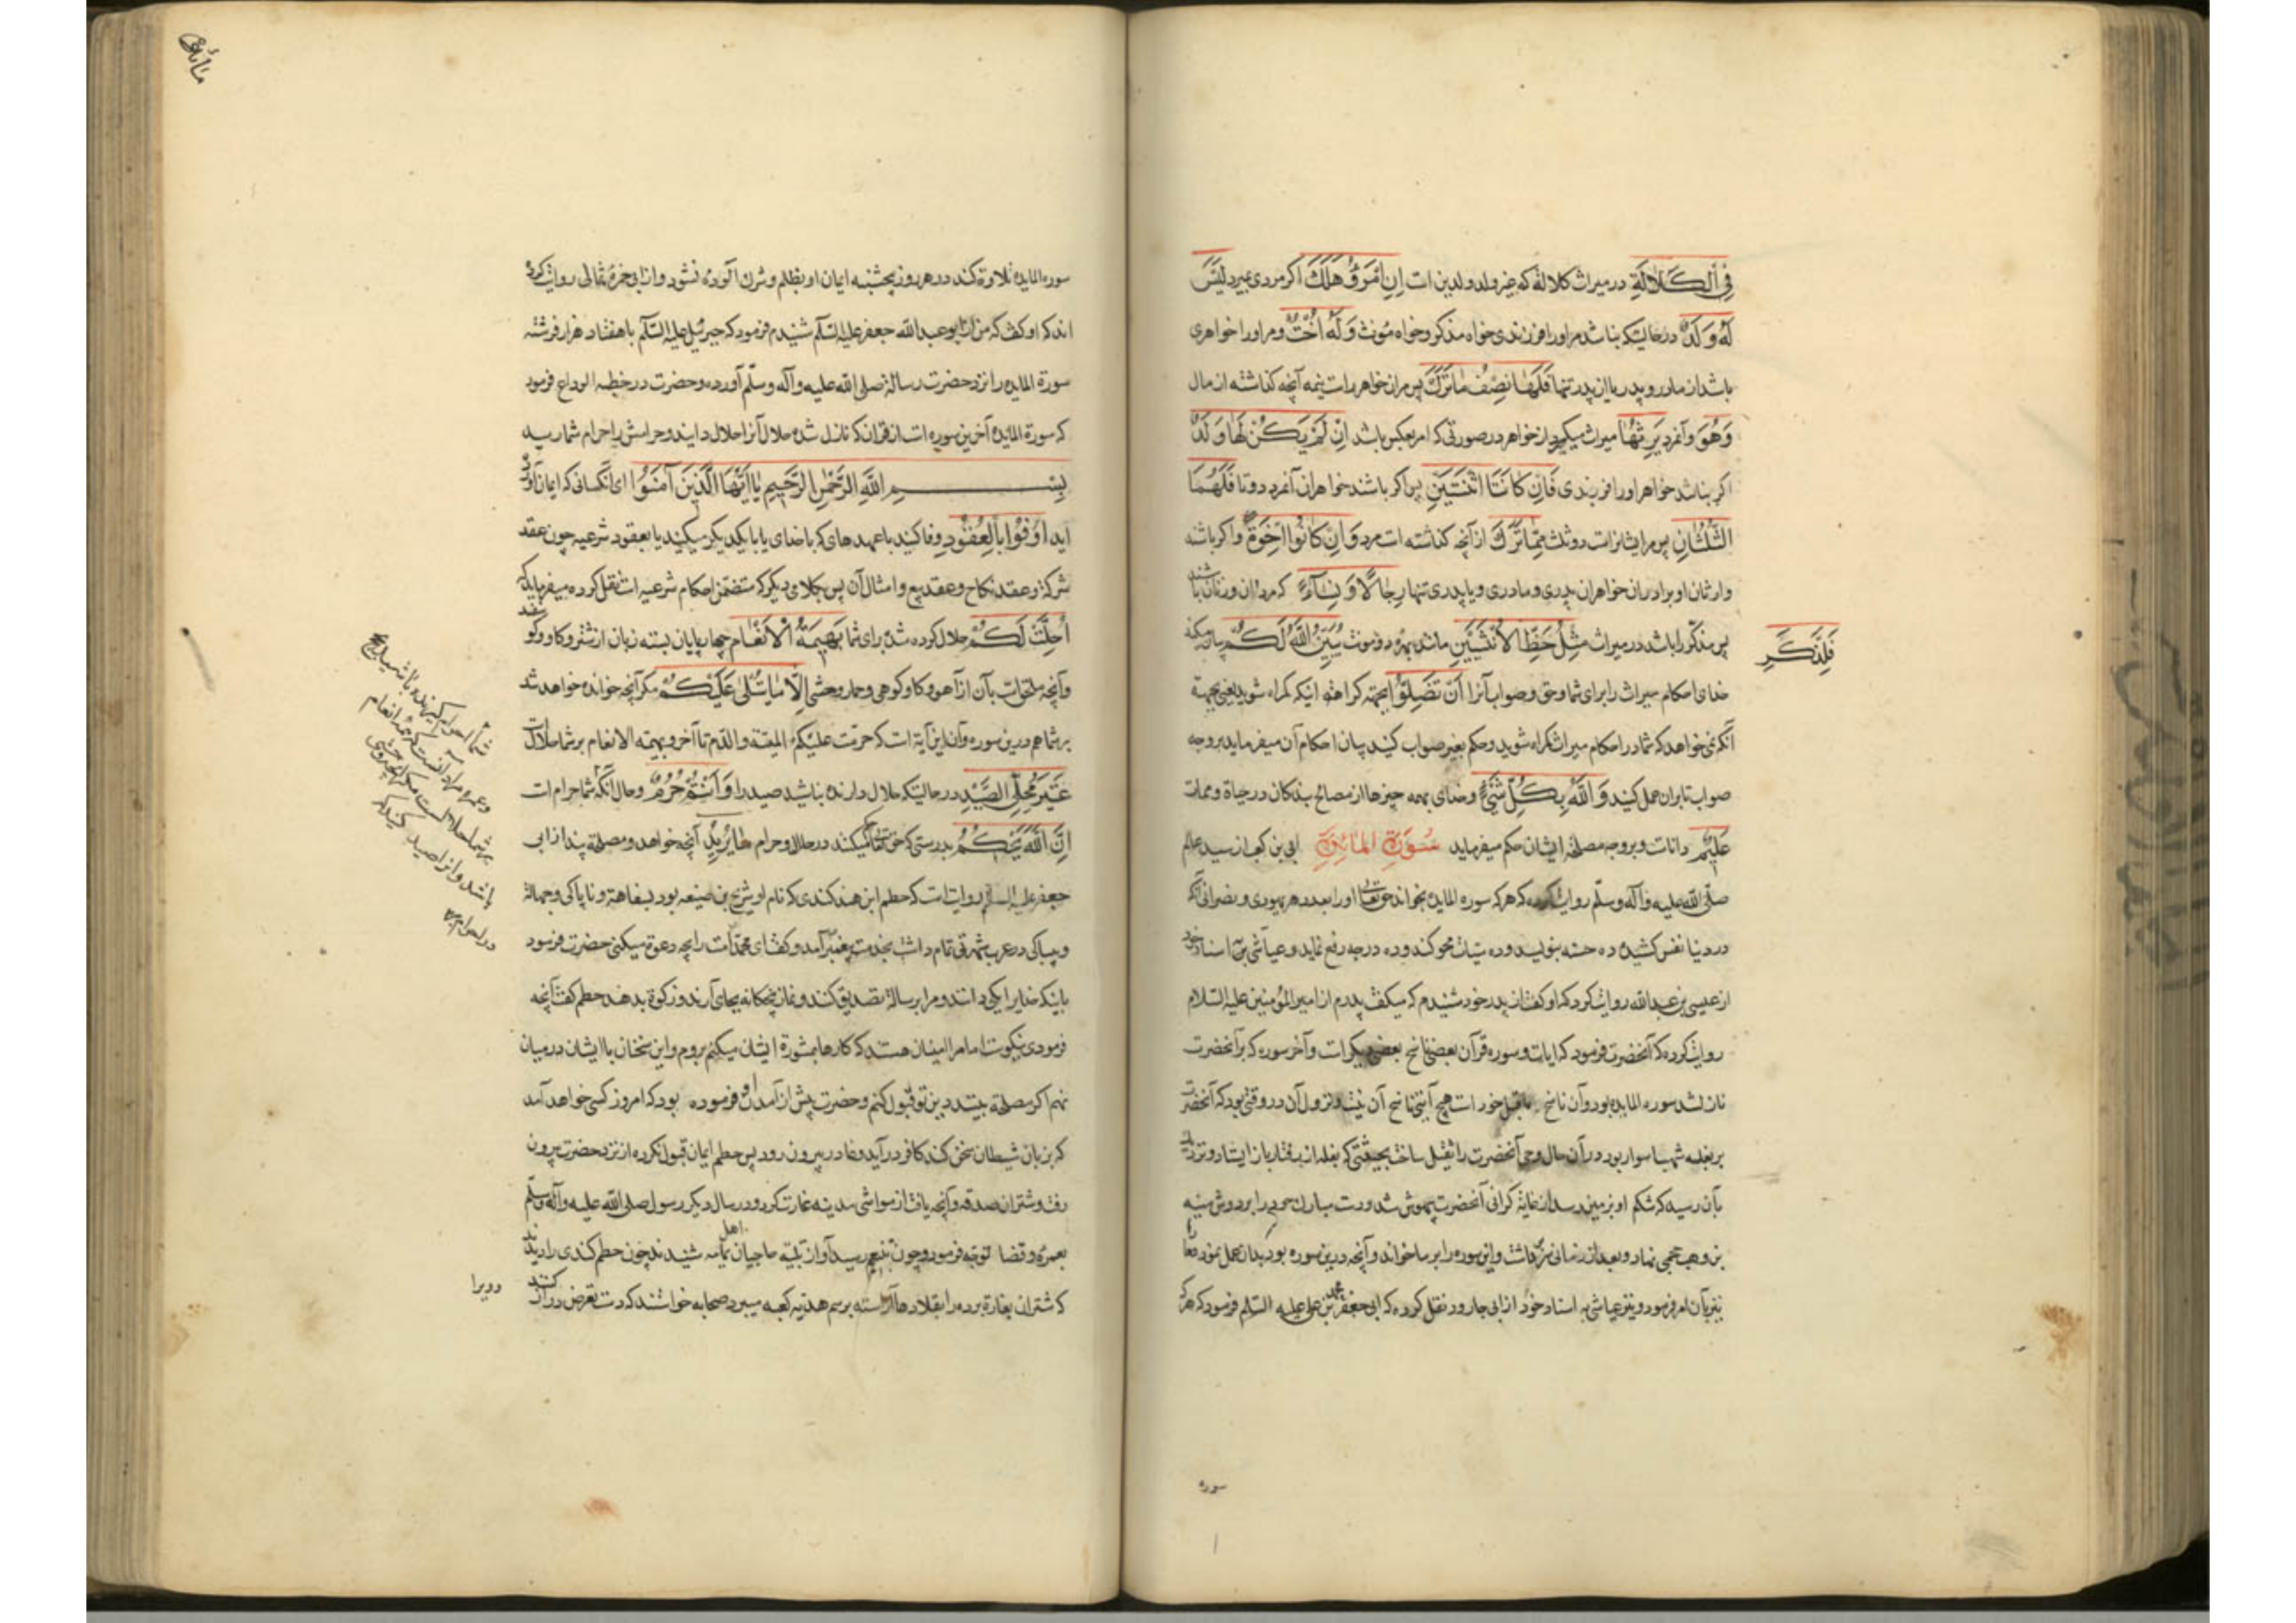 فِی الْکَلَالَةِ در میراث کلاله که غیر ولد و والدین است اِنِ امْرُؤٌ هَلَکَ اگر مردی بمیرد لَیْسَ
لَهُ وَلَدٌ در حالیتکه نباشد مر او را فرزندی خواه مذکر و خواه مؤنث وَلَهُ اُخْتٌ و مر او را خواهری
باشد از مادر و پدر یا از پدر تنها فَلَهَا نِصْفُ مَا تَرَکَ پس مران خواهر راست نیمه آنچه گذاشته از مال
وَهُوَ و آنمرد یَرِثُهَا میراث میگیرد از خواهر در صورتی که امر بعکس باشد اِنْ لَمْ یَکُنْ لَهَا وَلَدٌ
اگر نباشد خواهر او را فرزندی فَاِنْ کَانَتَا اثْنَتَیْنِ پس اگر باشند خواهران آنمرد دو تا فَلَهُمَا
الثُّلُثَانِ پس مر ایشانراست دو ثلث مِمَّا تَرَکَ از آنچه گذاشته است مرد وَاِنْ کَانُوا اِخْوَةً و اگر باشند
وارثان او برادران خواهران پدری و مادری و یا پدری تنها رِجَالًا وَنِسَاءً که مردان و زنان باشند
پس مذکر را باشد در میراث مِثْلُ حَظِّ الْاُنْثَیَیْنِ مانند بهره دو مونث یُبَیِّنُ اللّٰهُ لَکُمْ بیان میکند
فَلِلذَّکَرِ
خدای احکام میراث را برای شما و حق و صواب آنرا اَنْ تَضِلُّوا بجهته کراهته اینکه گمراه شوید یعنی بجهتة
آنکه نمی خواهد که شما در احکام میراث گمراه شوید و حکم بغیر صواب کنید بیان احکام آن میفرماید بر وجه
صواب تا بران عمل کنید وَاللّٰهُ بِکُلِّ شَیْءٍ و خدای بهمه چیزها از مصالح بندکان در حیاة و ممات
عَلِیمٌ داناست و بر وجه مصلحة ایشان حکم میفرماید سُورَةُ المَائِدَةِ ابی بن کعب از سید عالم
صلّی اللّه علیه و آله و سلّم روایت کرده که هر که سوره المایده بخواند حق تعالی او را بعدد هر یهودی و نصرانی که
در دنیا نفس کشیده ده حسنه بنویسد و ده سیئات محو کند و ده درجه رفع نماید و عیاشی باسناد خود
از عیسی بن عبد اللّه روایت کرد که او گفت از پدر خود شنیدم که میگفت پدرم از امیر المؤمنین علیه السلام
روایت کرده که آنحضرت فرمود که ایات و سوره قرآن بعضی ناسخ بعضی دیگر است و آخر سوره که بر آنحضرت
نازل شد سوره المایده بود و آن ناسخ ماقبل خود است هیچ آیتی ناسخ آن نیست و نزول آن در وقتی بود که آنحضرت
بر بغله شهبا سوار بود در آن حال وحی آنحضرت را ثقیل ساخت بحیثیتی که بغله از رفتار باز ایستاد و نزدیک
بآن رسید که شکم او بزمین رسد از غایة گرانی آنحضرت بیهوش شد و دست مبارک خود را بر دوش منبه
بن وهب جمحی نهاد و بعد از زمانی و این سوره را بر ما خواند و آنچه درین سوره بود بدان عمل نمود و ما را
نیز بآن امر فرمود و نیز عیاشی به اسناد خود از ابی جارود نقل کرده که ابی جعفر محمد بن علی علیه السّلم فرمود که هر که
سوره
مائده
سوره المایده تلاوة کند در هر روز پنجشنبه ایمان او بظلم و شرک آلوده نشود و از ابی حمزه ثمالی روایت کرده
اند که او گفت که من از ابو عبد اللّه جعفر علیه السّلم شنیدم فرمود که جبرئیل علیه السّلم با هفتاد هزار فرشته
سورة المایده را نزد حضرت رسالة صلی اللّه علیه و آله و سلّم آورده و حضرت در خطبه الوداع فرمود
که سورة المایده آخرین سوره است از قران که نازل شده حلال آنرا حلال دانید و حرامش را حرام شمارید
بِسْمِ اللّٰهِ الرَّحْمٰنِ الرَّحِیمِ یَا اَیُّهَا الَّذِینَ آمَنُوا ای آنکسانی که ایمان آورده
اید اَوْفُوا بِالْعُقُودِ وفا کنید با عهدهای که با خدای یا با یکدیگر میکنید یا بعقود شرعیه چون عقد
شرکة و عقد نکاح و عقد بیع و امثال آن پس بکلامی دیگر که متضمن احکام شرعیه است نقل کرده میفرماید که
اُحِلَّتْ لَکُمْ حلال کرده شد برای شما بَهِیمَةُ الْاَنْعَامِ چهار پایان بسته زبان از شتر و گاو و گوسفند
و آنچه ملحقات بآن از آهو و گاو کوهی و حمار وحشی اِلَّا مَا یُتْلَی عَلَیْکُمْ مگر آنچه خوانده خواهد شد
بر شما هم درین سوره و آن این آیة است که حرمت علیکم المیتة و الدم تا آخر و بهیمه الانعام بر شما حلال است
غَیْرَ مُحِلِّی الصَّیْدِ در حالیتکه حلال دارنده نباشید صید را وَاَنْتُمْ حُرُمٌ و حال آنکه شما حرام است
اِنَّ اللّٰهَ یَحْکُمُ بدرستی که حق تعالی حکم میکند در حلال و حرام مَا یُرِیدُ آنچه خواهد و مصلحة بیند از ابی
جعفر علیه السلام روایتست که حطم ابن هند کندی که نام او شریح بن ضبیعه بود بسفاهة و ناپاکی و جهالة
و بیباکی در عرب شهرتی تمام داشت بخدمت پیغمبر آمد و گفت ای محمد امت را بچه دعوة میکنی حضرت فرمود
باینکه خدایرا یکی دانند و مرا برسالة تصدیق کنند و نماز پنجکانه بجای آرند و زکوة بدهند حطم گفت آنچه
فرمودی نیکوست اما مرا امینان هستند که کارها بمشورة ایشان میکنم بروم و این سخنان با ایشان در میان
نهم اگر مصلحة بینند دین تو قبول کنم و حضرت پیش از آمدن او فرموده بود که امروز کسی خواهد آمد
که بزبان شیطان سخن کند کافر درآید و غادر بیرون رود پس حطم ایمان قبول نکرده از نزد حضرت بیرون
رفت و شتران صدقه و آنچه یافت از مواشی مدینه غارت کرد و در سال دیگر رسول صلی اللّه علیه و آله و سلّم
بعمرة قضا توجه فرمود و چون بتنعیم رسید آواز تلبیه حاجیان اهل یمامه شنیدند چون حطم کندی را دیدند
که شتران بغارة برده را بقلادها آراسته برسم هدیه کعبه میبرد صحابه خواستند که دست تعرض دراز کنند
و ویرا